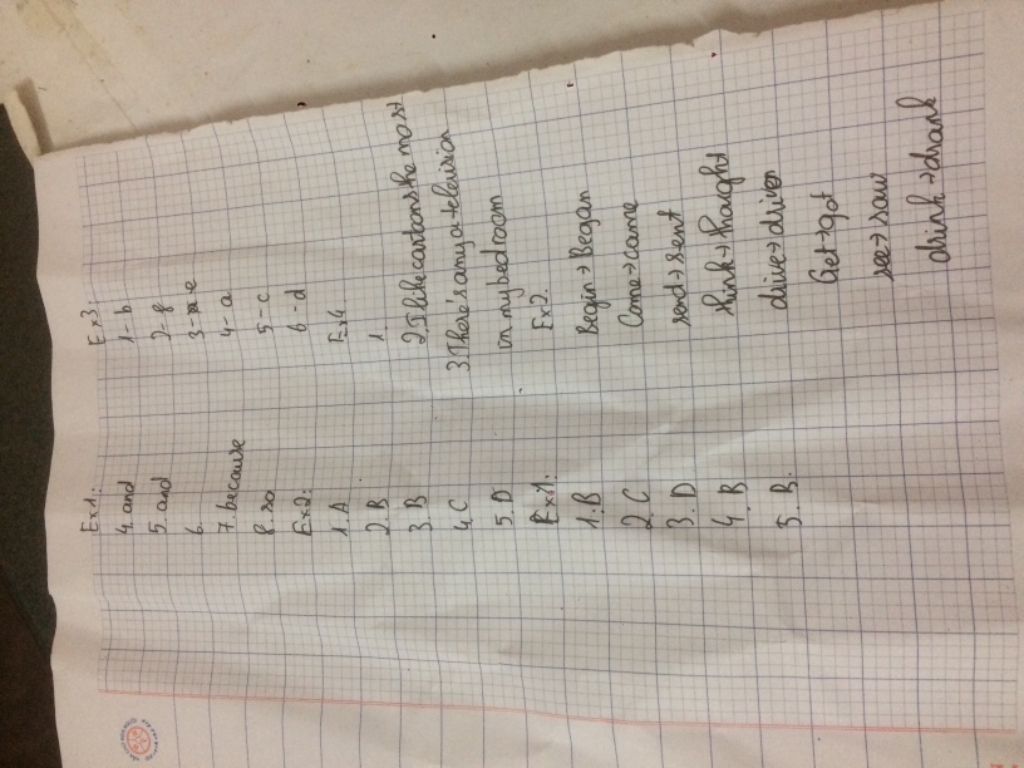 Ex1:
4. and
5. and
6.
7. because
8. so
Ex2:
1. A
2. B
3. B
4. C
5. D
Ex1:
1. B
2. C
3. D
4. B
5. B.
Ex3:
1-b
2-f
3-e
4-a
5-c
6-d
Ex4
1.
2. I like cartoons the most
3 There's any a television
in my bedroom
Ex2.
Begin → Began
Come → came
send → sent
think → thought
drive → driven
Get → got
see → saw
drink → drank